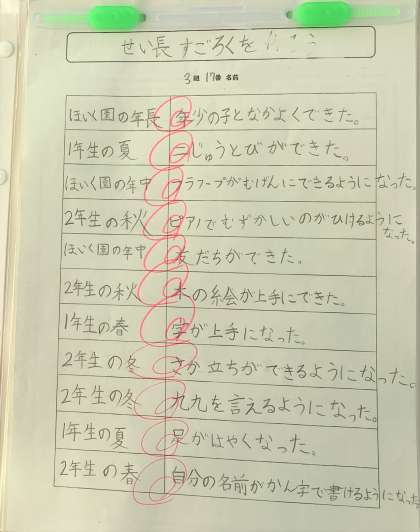 せい長すごろくを
3組 17番 名前
ほいく園の年長 年少の子となかよくできた。
1年生の夏 二じゅうとびができた。
ほいく園の年中 フラフープがむげんにできるようになった。
2年生の秋 ピアノでむずかしいのがひけるようになった。
ほいく園の年中 友だちができた。
2年生の秋 木の絵が上手にできた。
1年生の春 字が上手になった。
2年生の冬 さか立ちができるようになった。
2年生の冬 九九を言えるようになった。
1年生の夏 足がはやくなった。
2年生の春 自分の名前がかん字で書けるようになった